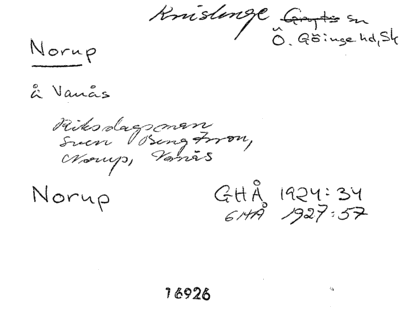 Knislinge Gryts sn
Norup
Ö. Göinge hd, Sk
å Vanås
Riksdagsman
Sven Bengtsson,
Norup, Vanås
Norup GHÅ 1924:34
GHÅ 1927:57
16926